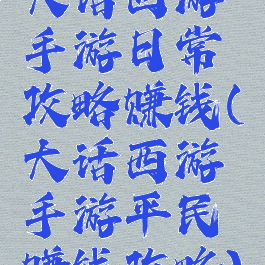 大话西游
手游日常
攻略赚钱(
大话西游
手游平民
赚钱攻略)